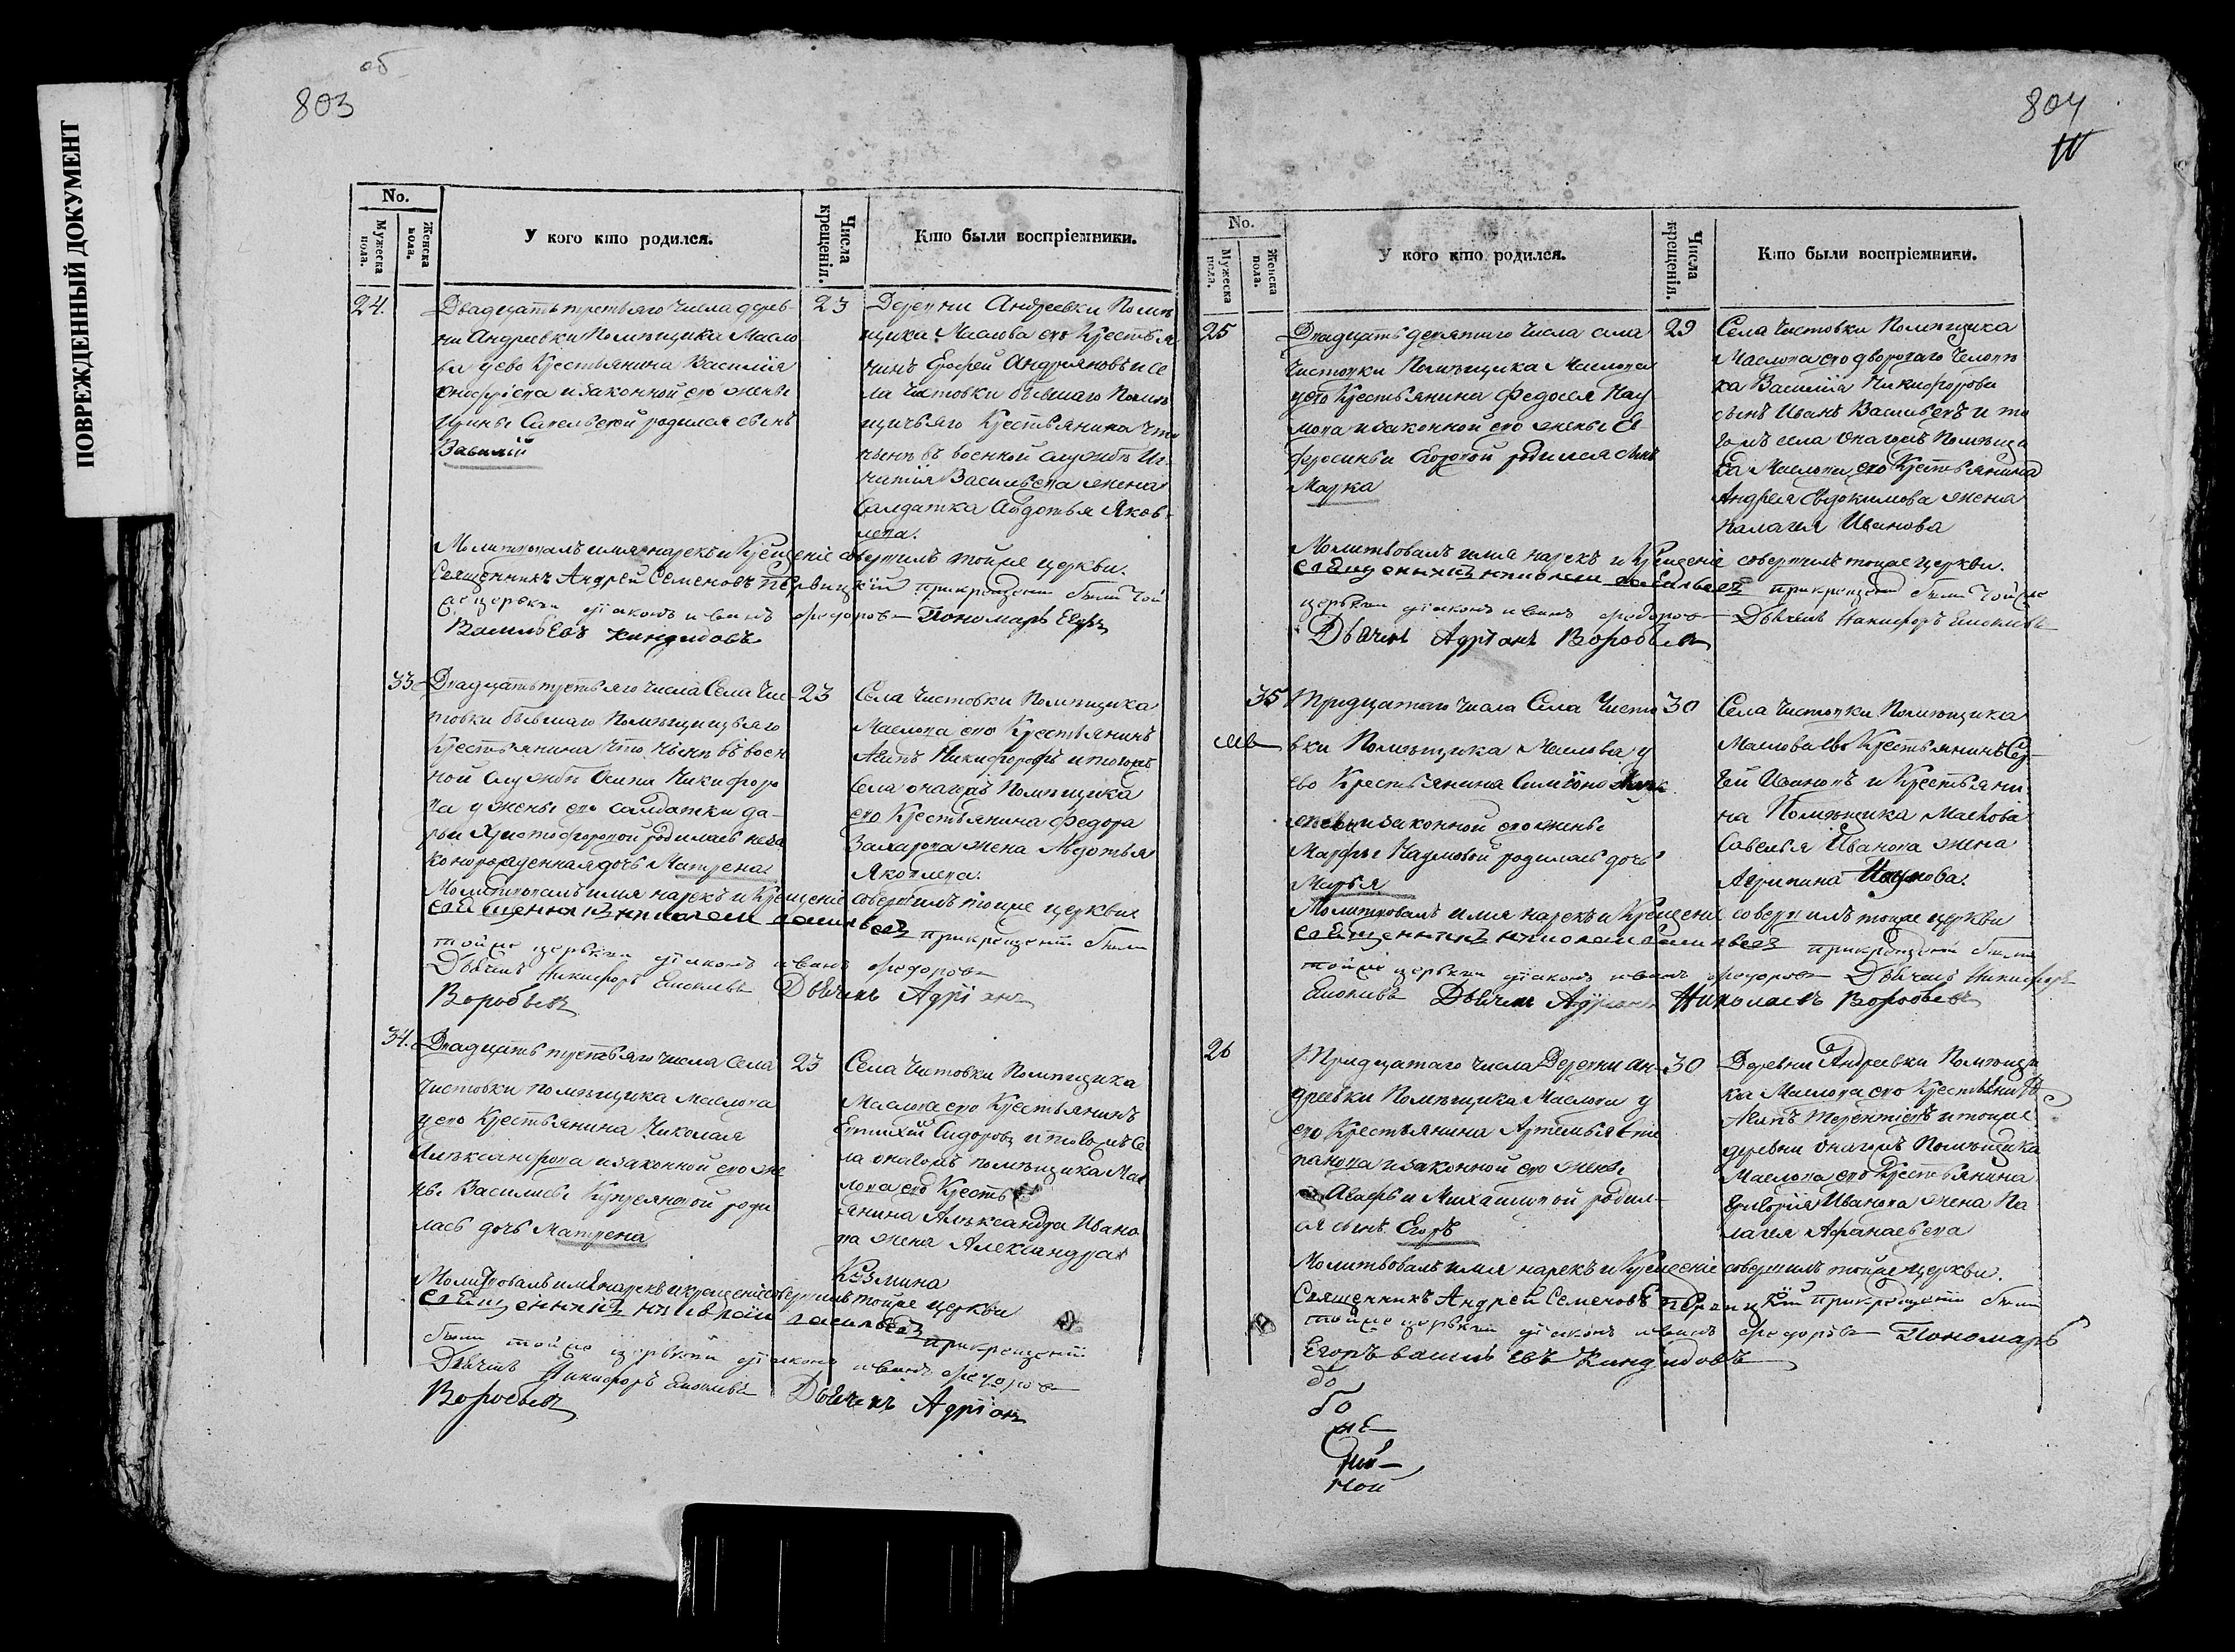 ПОВРЕЖДЕННЫЙ ДОКУМЕНТ
об
803
No.
Мужеска пола.
Женска пола.
У кого кто родился.
Числа крещенія.
Кто были воспріемники.
24.
Двадцать третьяго числа дерев-
ни Андреевки Помѣщика Масло
ва уево Крестьянина Василія
и законной его жены
Ирины Савельевой родился сынъ
Василій
23
Деревни Андреевки Помѣ
щика Маслова его Крестья
нинъ Ерофей Андреяновъ и се
ла Чистовки бывшаго Помѣ
щичьяго Крестьянина что
нынѣ въ военной службѣ Иг
натія Васильева жена
Салдатка Авдотья Яков-
лева.
Молитвовалъ имя нарекъ и Крещеніе совершилъ тоиже церкви.
Священникъ Андрей Семеновъ прикрещении были той
же церкви діаконъ иванъ федоровъ Пономарь Егоръ
Васильевъ Кандидовъ
33
Двадцать третьяго числа Села Чис-
товки бывшаго Помѣщищьяго
Крестьянина что нынѣ въ воен
ной службѣ Осипа Никифоро
ва у жены его салдатки да-
рьи Христофоровой родилась неза
коннорожденная дочь Матрена
23
Села Чистовки Помѣщика
Маслова его Крестьянинъ
Осипъ Никифоровъ и тогожъ
Села онагожъ Помѣщика
его Крестьянина Федора
Захарова жена Авдотья
Яковлева.
Молитвовалъ имя нарекъ и Крещеніе совершилъ тоиже церкви
священникъ николаи васильевъ прикрещении были
тойже церкви діаконъ иванъ федоровъ
Дьячекъ Никифоръ Дьячекъ Адріанъ
Воробьевъ
34.
Двадцать третьяго числа Села
Чистовки помѣщика Маслова
уего Крестьянина Николая
Александрова и законной его же
ны Василисы Купреяновой роди
лась дочь Матрена
23
Села Чистовки Помѣщика
Маслова его Крестьянинъ
Евтихій Сидоровъ и тогожъ Се
ла онагожъ помѣщика Мас
лова его Кресть
янина Александра Ивано
ва жена Александра
Козмина
Молитвовалъ имя нарекъ и крещеніе совершилъ тоиже церкви
священникъ николаи васильевъ прикрещении
были тойже церкви діаконъ иванъ федоровъ
Дьячекъ Никифоръ Дьячекъ Адріанъ
Воробьевъ
804
No.
Мужеска пола.
Женска пола.
У кого кто родился.
Числа крещенія.
Кто были воспріемники.
25
Двадцать девятаго числа села
Чистовки Помѣщика Маслова
уего Крестьянина Федосея Нау
мова и законной его жены Е
фросиньи Егоровой родился сынъ
Марка
29
Села Чистовки Помѣщика
Маслова его дворогаго Человѣ
ка Василія Никифорова
сынъ Иванъ Васильевъ и то
гожъ села онагожъ Помѣщи
ка Маслова его Крестьянина
Андрея Евдокимова жена
палагея Иванова
Молитвовалъ имя нарекъ и Крещеніе совершилъ тоиже церкви.
священникъ николаи васильевъ прикрещении были тойже
церкви діаконъ иванъ федоровъ Дьячекъ Никифоръ
Дьячекъ Адріанъ Воробьевъ
35
Тридцатаго числа Села Чисто
вки Помѣщика Маслова у
ево Крестьянина Симіона
и законной его жены
Марфы Наумовой родилась дочь
Марья
30
Села Чистовки Помѣщика
Маслова его Крестьянинъ Сер-
гей Ивановъ и Крестьяни
на Помѣщика Маслова
Савелья Иванова жена
Агрипина Наумова.
Молитвовалъ имя нарекъ и Крещеніе совершилъ тоиже церкви
священникъ николаи васильевъ прикрещении были
тойже церкви діаконъ иванъ федоровъ Дьячекъ Никифоръ
Дьячекъ Адріанъ Николаевъ Воробьевъ
26
Тридцатаго числа Деревни Ан-
дреевки Помѣщика Маслова у
его Крестьянина Артемья Сте
панова и законной его жены
Агафьи Михаиловой родил-
ся сынъ Егоръ
30
Деревни Андреевки Помѣщи
ка Маслова его Крестьянинъ
Осипъ Терентіевъ и тоиже
деревни онагожъ Помѣщика
Маслова его Крестьянина
Григорія Иванова жена Па
лагея Афанасьева
Молитвовалъ имя нарекъ и Крещеніе совершилъ тоиже Церкви.
Священникъ Андрей Семеновъ прикрещении были
тойже церкви діаконъ иванъ федоровъ Пономарь
Егоръ васильевъ Кандидовъ